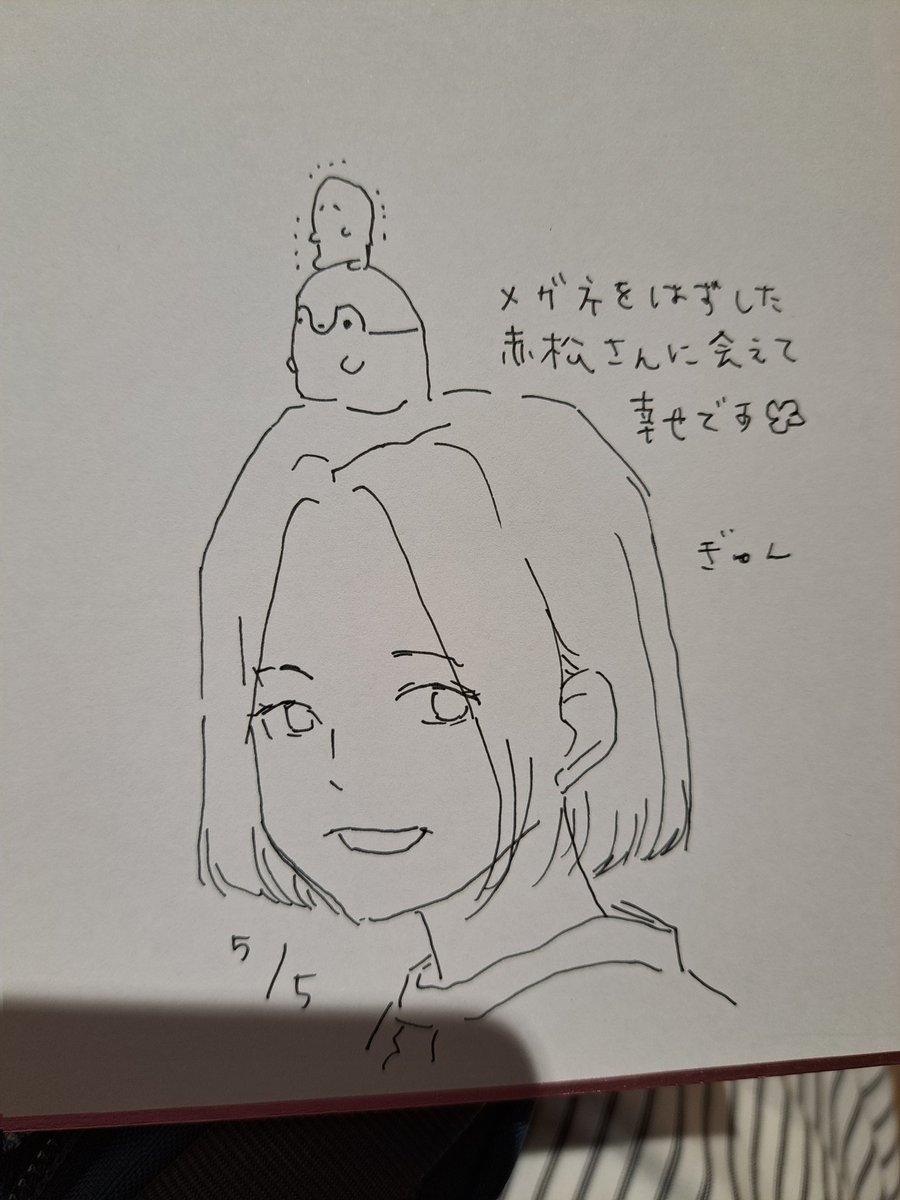 メガネをはずした
赤松さんに会えて
幸せです
ぎゅん
5/5